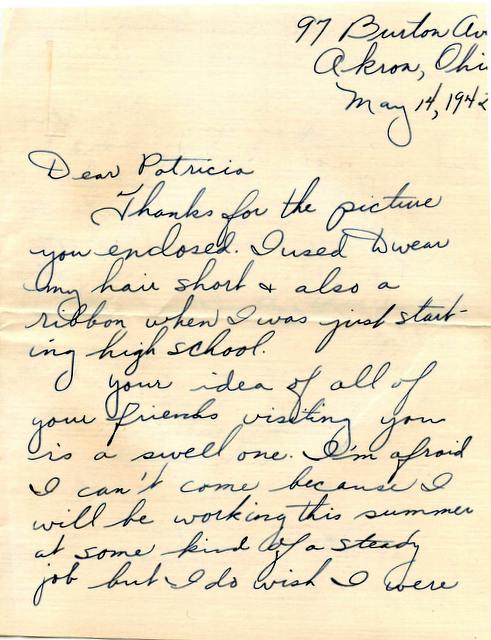 97 Burton Av
Akron, Ohi
May 14, 1942
Dear Patricia
Thanks for the picture
you enclosed. I used to wear
my hair short & also a
ribbon when I was just start-
ing high school.
Your idea of all of
your friends visiting you
is a swell one. I'm afraid
I can't come because I
will be working this summer
at some kind of a steady
job but I do wish I were